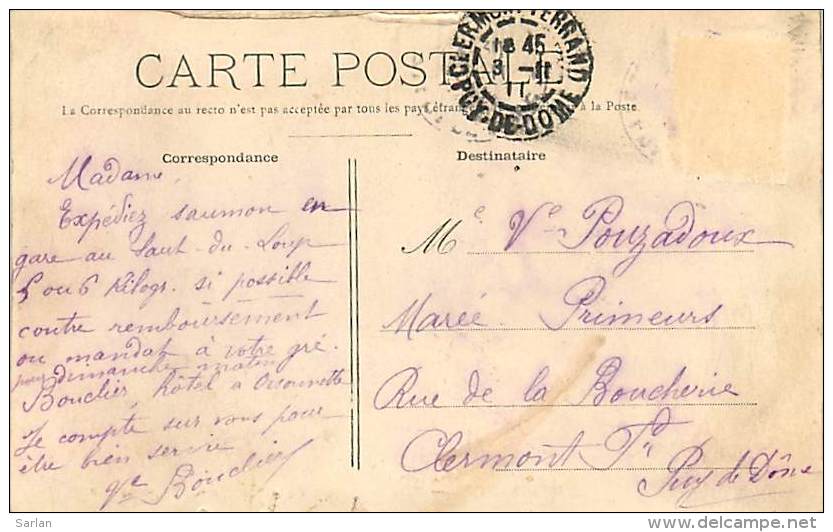 CARTE POSTALE
La Correspondance au recto n'est pas acceptée par tous les pays étrangers à la Poste.
CLERMONT-FERRAND
18 45
3 - 11
11
PUY-DE-DOME
Correspondance
Madame,
Expédiez saumon en
gare au Saut-du-Loup
5 ou 6 kilogs. si possible
contre remboursement
ou mandat à votre gré.
pour dimanche matin
Bouclier, hôtel à
Je compte sur vous pour
être bien servie
Bouclier
Destinataire
Me Ve Pouzadoux
Marée Primeurs
Rue de la Boucherie
Clermont Fd
Puy de Dôme
Sarlan
www.delcampe.net